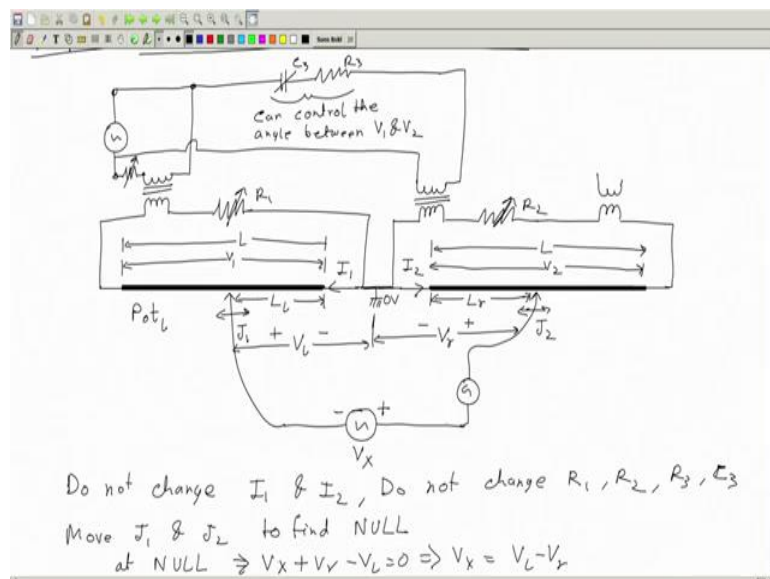 C3 R3
can control the
angle between V1 & V2
R1
R2
L
V1
L
V2
I1
I2
0V
PotL
LL
Lr
J1
+ VL -
- Vr +
J2
G
- +
VX
Do not change I1 & I2, Do not change R1, R2, R3, C3
Move J1 & J2 to find NULL
at NULL ⇒ VX + Vr - VL = 0 ⇒ VX = VL - Vr